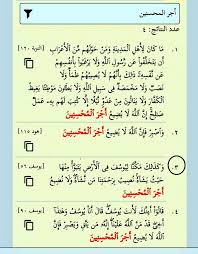 أجر المحسنين
عدد النتائج: ٤
١. مَا كَانَ لِأَهْلِ الْمَدِينَةِ وَمَنْ حَوْلَهُم مِّنَ الْأَعْرَابِ [التوبة ١٢٠]
أَن يَتَخَلَّفُوا عَن رَّسُولِ اللَّهِ وَلَا يَرْغَبُوا بِأَنفُسِهِمْ
عَن نَّفْسِهِ ذَٰلِكَ بِأَنَّهُمْ لَا يُصِيبُهُمْ ظَمَأٌ وَلَا
نَصَبٌ وَلَا مَخْمَصَةٌ فِي سَبِيلِ اللَّهِ وَلَا يَطَئُونَ مَوْطِئًا يَغِيظُ
الْكُفَّارَ وَلَا يَنَالُونَ مِنْ عَدُوٍّ نَّيْلًا إِلَّا كُتِبَ لَهُم بِهِ عَمَلٌ
صَالِحٌ إِنَّ اللَّهَ لَا يُضِيعُ أَجْرَ الْمُحْسِنِينَ
٢. وَاصْبِرْ فَإِنَّ اللَّهَ لَا يُضِيعُ أَجْرَ الْمُحْسِنِينَ [هود ١١٥]
٣. وَكَذَٰلِكَ مَكَّنَّا لِيُوسُفَ فِي الْأَرْضِ يَتَبَوَّأُ مِنْهَا [يوسف ٥٦]
حَيْثُ يَشَاءُ نُصِيبُ بِرَحْمَتِنَا مَن نَّشَاءُ وَلَا نُضِيعُ
أَجْرَ الْمُحْسِنِينَ
٤. قَالُوا أَإِنَّكَ لَأَنتَ يُوسُفُ قَالَ أَنَا يُوسُفُ وَهَٰذَا [يوسف ٩٠]
أَخِي قَدْ مَنَّ اللَّهُ عَلَيْنَا إِنَّهُ مَن يَتَّقِ وَيَصْبِرْ فَإِنَّ
اللَّهَ لَا يُضِيعُ أَجْرَ الْمُحْسِنِينَ